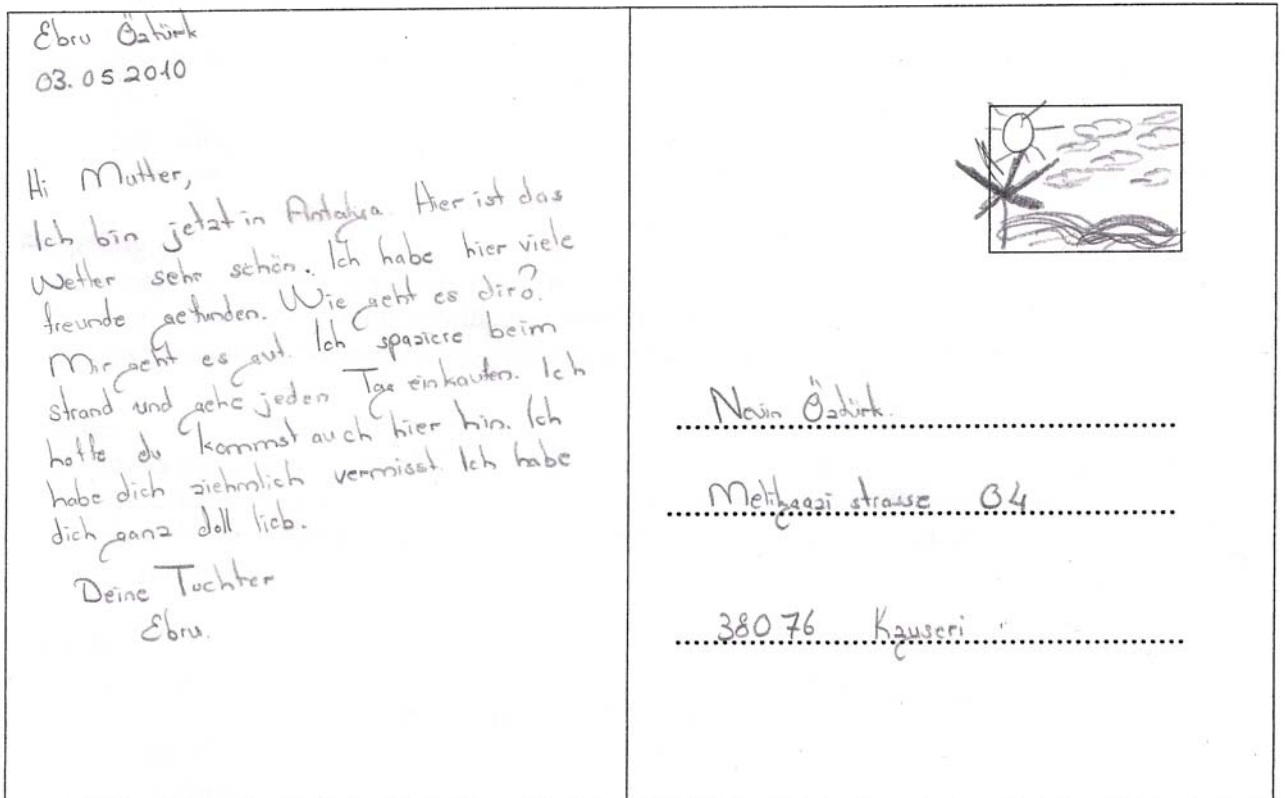 Ebru Öztürk
03.05 2010
Hi Mutter,
Ich bin jetzt in Antalya. Hier ist das
Wetter sehr schön. Ich habe hier viele
freunde gefunden. Wie geht es dir?
Mir geht es gut. Ich spaziere beim
strand und gehe jeden Tag einkaufen. Ich
hoffe du kommst auch hier hin. Ich
habe dich ziehmlich vermisst. Ich habe
dich ganz doll lieb.
Deine Tochter
Ebru.
Nevin Öztürk.
Melikgazi strasse 04
38076 Kayseri